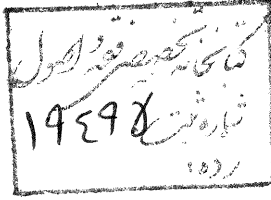 کتابخانه تخصصی فقه و اصول
شماره ثبت ۱۹۴۹۵
رده: